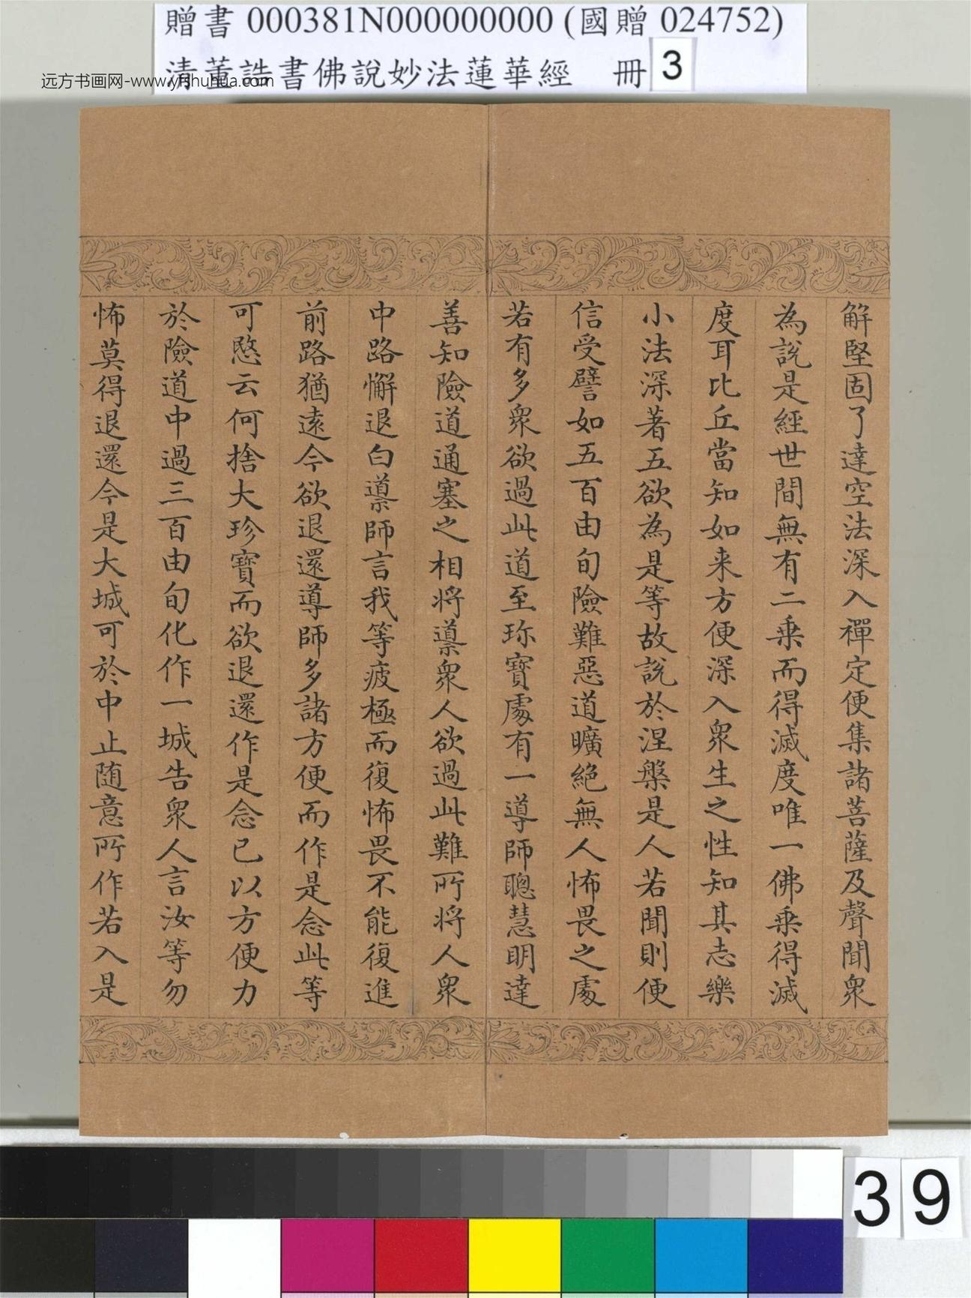 贈書 000381N000000000 (國贈 024752)
清董誥書佛說妙法蓮華經 冊 3
远方书画网-www.yfshuhua.com
解堅固了達空法深入禪定便集諸菩薩及聲聞衆
為說是經世間無有二乗而得滅度唯一佛乗得滅
度耳比丘當知如来方便深入衆生之性知其志樂
小法深著五欲為是等故說於涅槃是人若聞則便
信受譬如五百由旬險難惡道曠絕無人怖畏之處
若有多衆欲過此道至珎寶處有一導師聰慧明達
善知險道通塞之相將導衆人欲過此難所將人衆
中路懈退白導師言我等疲極而復怖畏不能復進
前路猶遠今欲退還導師多諸方便而作是念此等
可愍云何捨大珍寶而欲退還作是念已以方便力
於險道中過三百由旬化作一城告衆人言汝等勿
怖莫得退還今是大城可於中止随意所作若入是
39